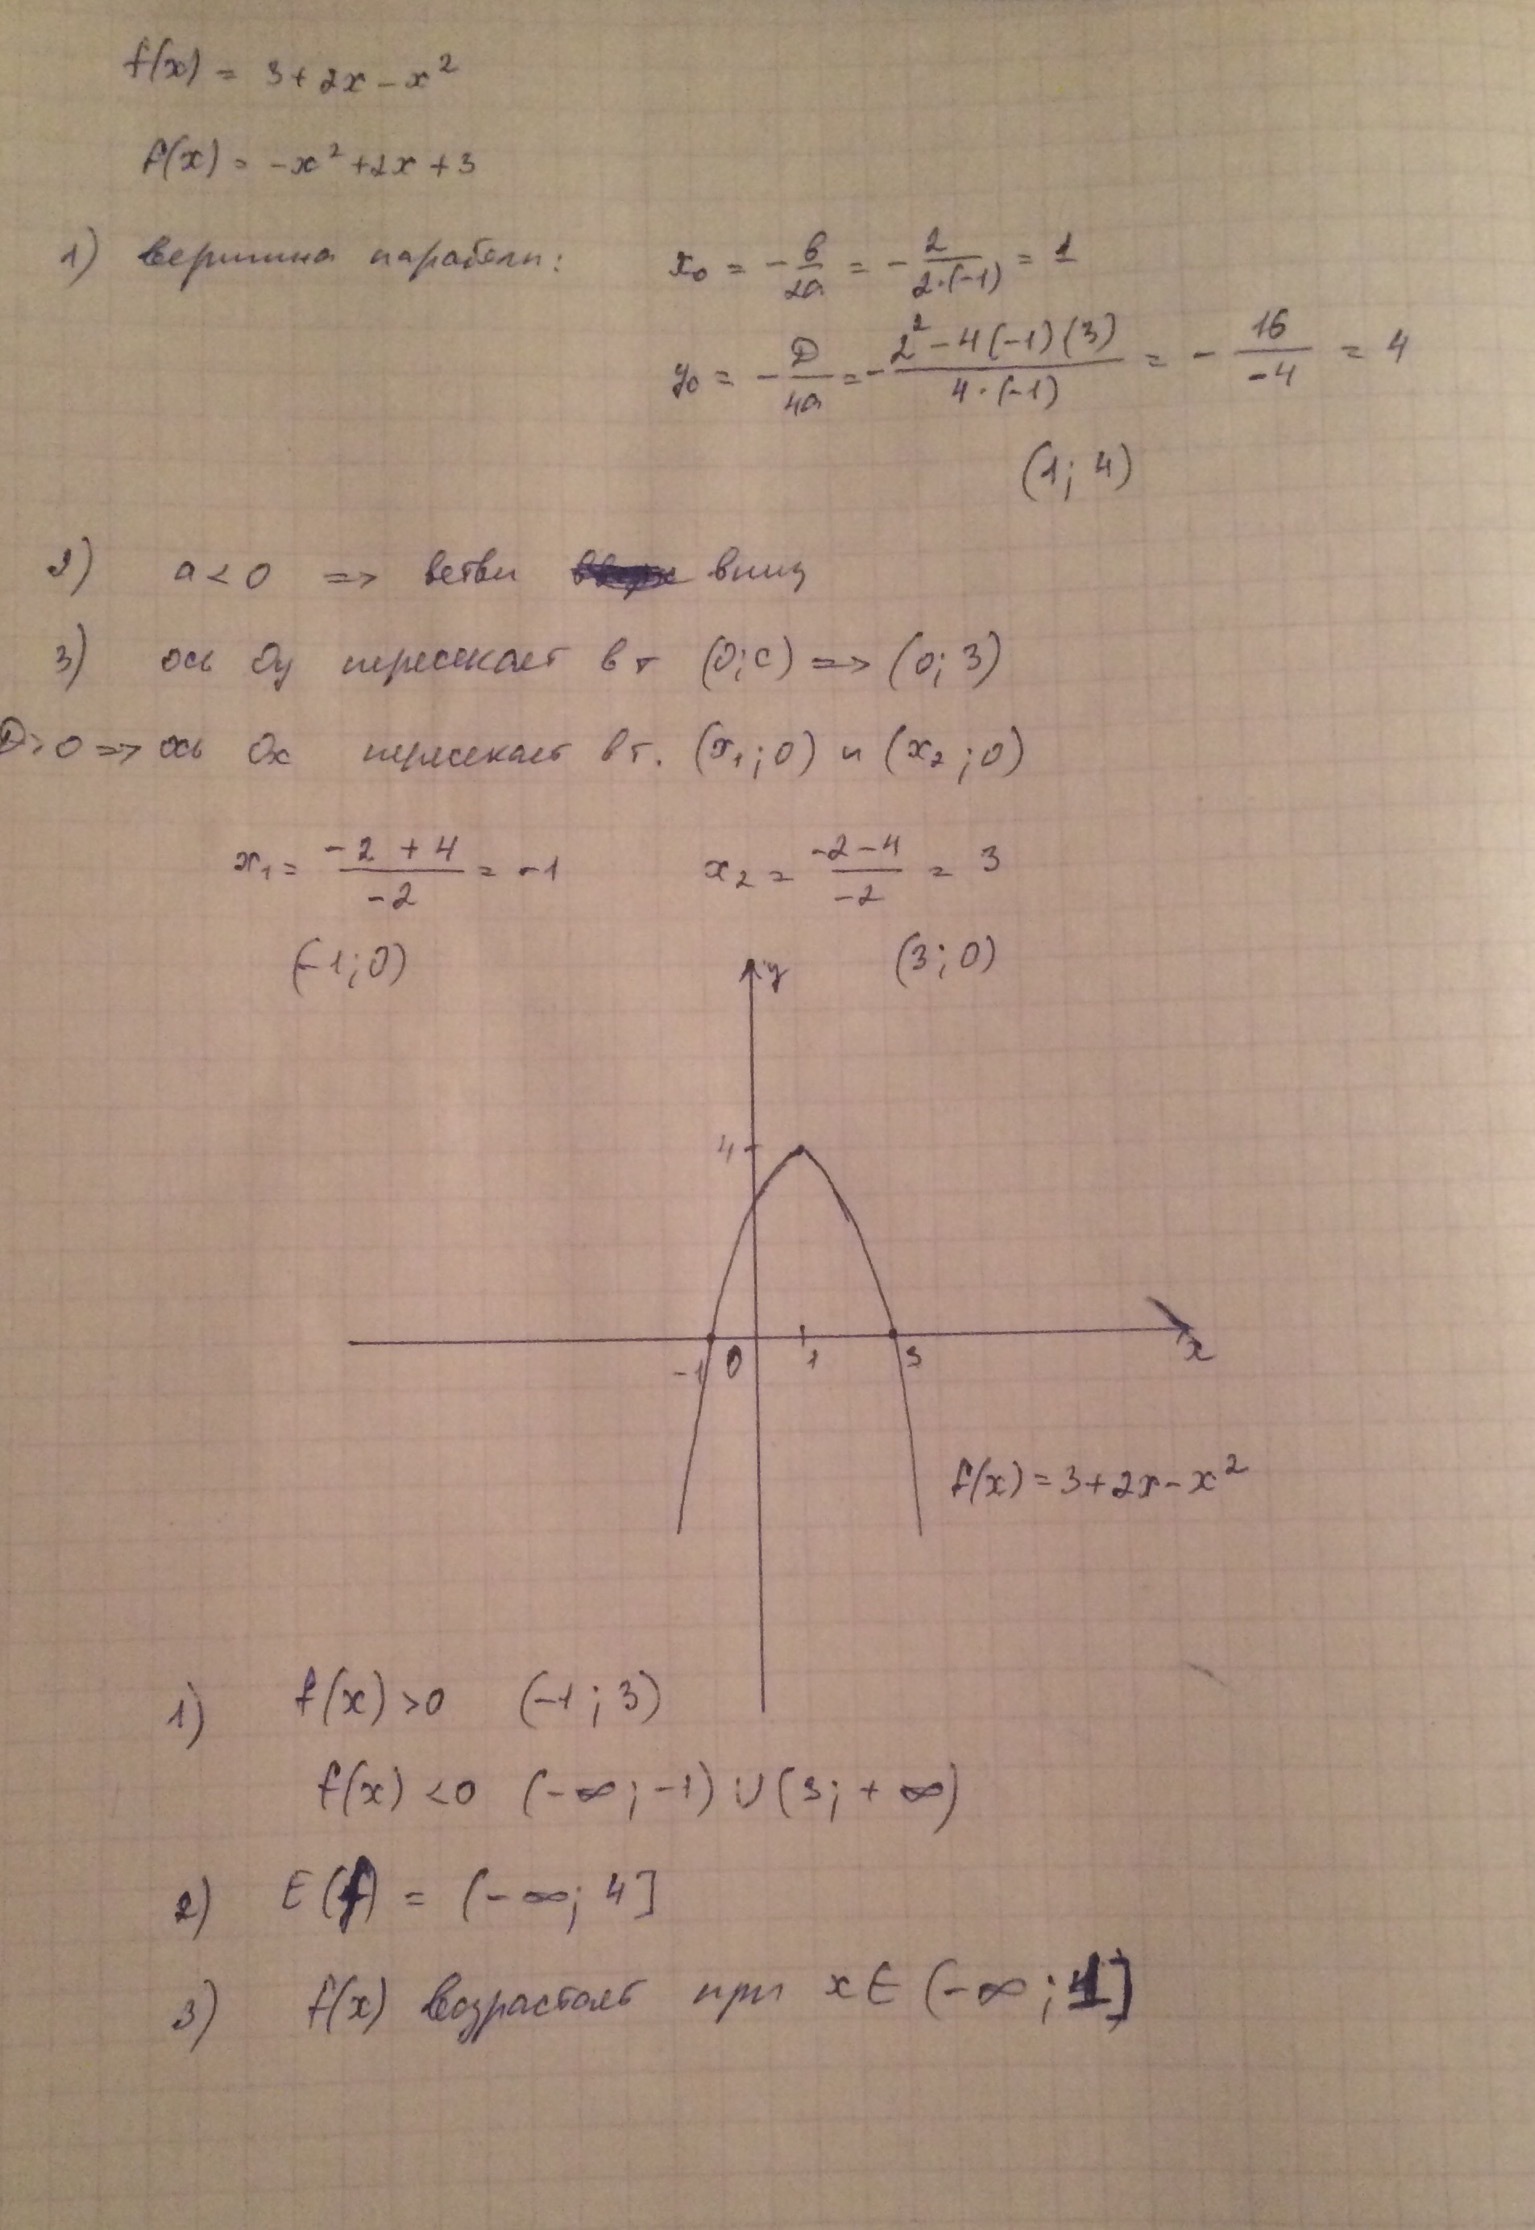 f(x) = 3 + 2x - x²
f(x) = -x² + 2x + 3
1) вершина параболы: x₀ = -в/2a = -2/(2·(-1)) = 1
y₀ = -D/4a = -(2² - 4(-1)(3))/(4·(-1)) = -16/-4 = 4
(1; 4)
2) a < 0 => ветви вниз
3) ось Oy пересекает в т (0; c) => (0; 3)
D > 0 => ось Ox пересекает в т. (x₁; 0) и (x₂; 0)
x₁ = (-2 + 4)/-2 = -1 x₂ = (-2 - 4)/-2 = 3
(-1; 0) (3; 0)
y
4
-1 0 1 3 x
f(x) = 3 + 2x - x²
1) f(x) > 0 (-1; 3)
f(x) < 0 (-∞; -1) ∪ (3; +∞)
2) E(f) = (-∞; 4]
3) f(x) возрастает при x ∈ (-∞; 1]